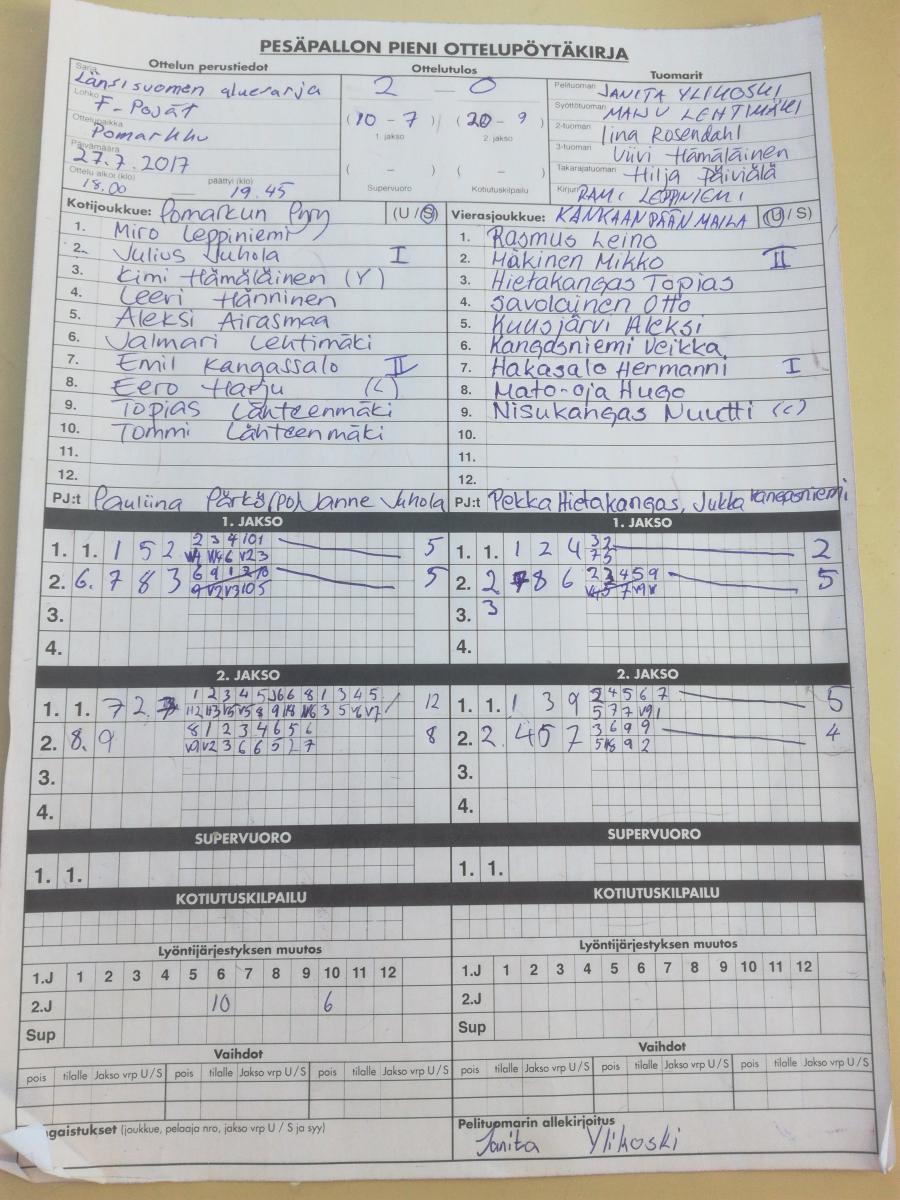 PESÄPALLON PIENI OTTELUPÖYTÄKIRJA
Ottelun perustiedot
Sarja Länsisuomen aluesarja
Lohko F-Pojat
Ottelupaikka Pomarkku
Päivämäärä 27.7.2017
Ottelu alkoi (klo) 18.00 päättyi (klo) 19.45
Ottelutulos
2 - 0
(10 - 7) (20 - 9)
1. jakso 2. jakso
( - ) ( - )
Supervuoro Kotiutuskilpailu
Tuomarit
Pelituomari JANITA YLIKOSKI
Syöttötuomari MAIJU LEHTIMÄKI
2-tuomari Iina Rosendahl
3-tuomari Viivi Hämäläinen
Takarajatuomari Hilja Päiviälä
Kirjuri RAMI LEPPINIEMI
Kotijoukkue: Pomarkun Pyry (U / S)
1. Miro Leppiniemi
2. Julius Juhola I
3. Kimi Hämäläinen (Y)
4. Leevi Hänninen
5. Aleksi Airasmaa
6. Jalmari Lehtimäki
7. Emil Kangassalo II
8. Eero Harju (L)
9. Topias Lähteenmäki
10. Tommi Lähteenmäki
11.
12.
PJ:t Pauliina Pärkö(PO) Janne Juhola
Vierasjoukkue: KANKAANPÄÄN MAILA (U / S)
1. Rasmus Leino
2. Häkinen Mikko II
3. Hietakangas Topias
4. Savolainen Otto
5. Kuusjärvi Aleksi
6. Kangasniemi Veikka
7. Hakasalo Hermanni I
8. Mato-oja Hugo
9. Nisukangas Nuutti (c)
10.
11.
12.
PJ:t Pekka Hietakangas, Jukka Kangasniemi
1. JAKSO
1. 1. 1 5 2 5
2. 6. 7 8 3 5
3.
4.
1. JAKSO
1. 1. 1 2 4 2
2. 2 8 6 5
3. 3
4.
2. JAKSO
1. 1. 7 2 12
2. 8. 9 8
3.
4.
2. JAKSO
1. 1. 1 3 9 5
2. 2. 4 5 7 4
3.
4.
SUPERVUORO
1. 1.
SUPERVUORO
1. 1.
KOTIUTUSKILPAILU
KOTIUTUSKILPAILU
Lyöntijärjestyksen muutos
1.J 1 2 3 4 5 6 7 8 9 10 11 12
2.J 10 6
Sup
Lyöntijärjestyksen muutos
1.J 1 2 3 4 5 6 7 8 9 10 11 12
2.J
Sup
Vaihdot
pois tilalle Jakso vrp U / S pois tilalle Jakso vrp U / S pois tilalle Jakso vrp U / S
Vaihdot
pois tilalle Jakso vrp U / S pois tilalle Jakso vrp U / S pois tilalle Jakso vrp U / S
ngaistukset (joukkue, pelaaja nro, jakso vrp U / S ja syy)
Pelituomarin allekirjoitus
Janita Ylikoski